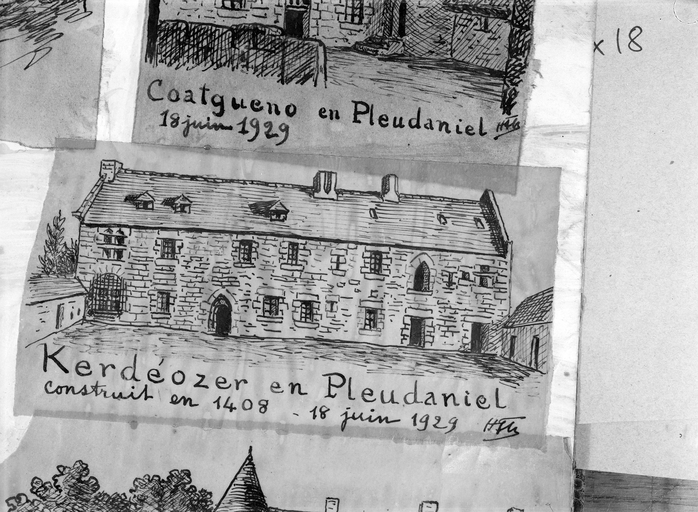 x 18
Coatgueno en Pleudaniel
18 juin 1929
Kerdéozer en Pleudaniel
construit en 1408 - 18 juin 1929